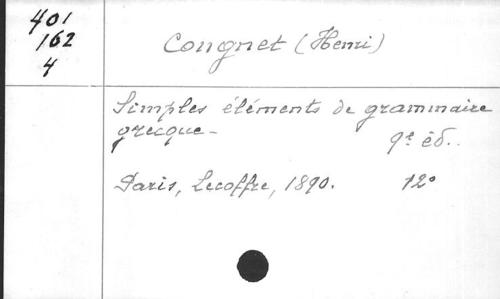 401
162
4
Congnet (Henri)
Simples éléments de grammaire
grecque_
9e éd..
Paris, Lecoffre, 1890. 12°